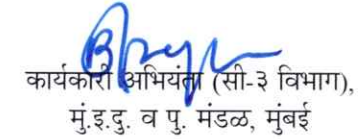 कार्यकारी अभियंता (सी-३ विभाग),
मुं.इ.दु. व पु. मंडळ, मुंबई